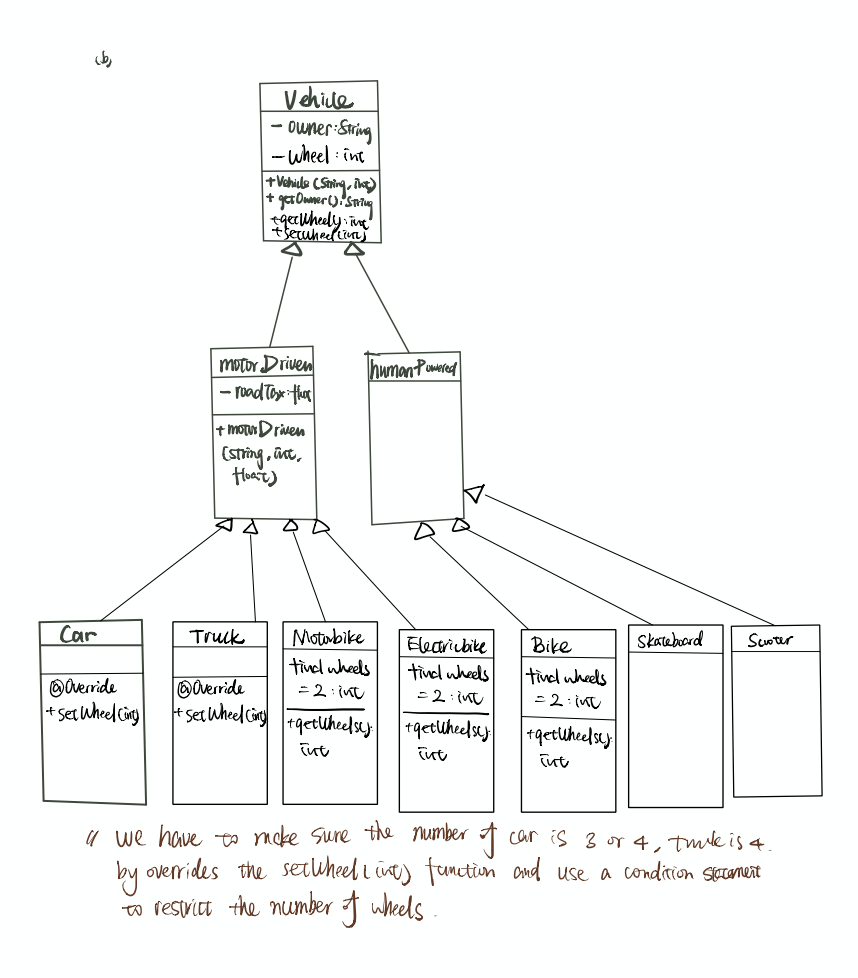 (b)
Vehicle
- owner:String
- wheel : int
+ Vehicle (String, int)
+ getOwner(): String
+getWheel(): int
+ setWheel(int)
motorDriven
- roadTax:float
+ motorDriven
(string, int,
float)
humanPowered
Car
@Override
+ setWheel(int)
Truck
@Override
+ setWheel(int)
Motorbike
final wheels
= 2 : int
+getWheels():
int
Electricbike
final wheels
= 2 : int
+getWheels():
int
Bike
final wheels
= 2 : int
+getWheels():
int
Skateboard
Scooter
// we have to make sure the number of car is 3 or 4, truck is 4.
by overrides the setWheel(int) function and use a condition statement
to restrict the number of wheels.